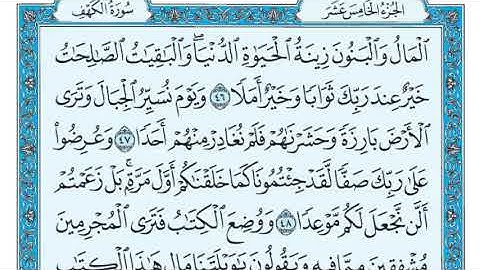 الجزء الخامس عشر
سورة الكهف
الْمَالُ وَالْبَنُونَ زِينَةُ الْحَيَوٰةِ الدُّنْيَا ۖ وَالْبَٰقِيَٰتُ الصَّٰلِحَٰتُ
خَيْرٌ عِندَ رَبِّكَ ثَوَابًا وَخَيْرٌ أَمَلًا ٤٦ وَيَوْمَ نُسَيِّرُ الْجِبَالَ وَتَرَى
الْأَرْضَ بَارِزَةً وَحَشَرْنَٰهُمْ فَلَمْ نُغَادِرْ مِنْهُمْ أَحَدًا ٤٧ وَعُرِضُوا۟
عَلَىٰ رَبِّكَ صَفًّا لَّقَدْ جِئْتُمُونَا كَمَا خَلَقْنَٰكُمْ أَوَّلَ مَرَّةٍۭ ۚ بَلْ زَعَمْتُمْ
أَلَّن نَّجْعَلَ لَكُم مَّوْعِدًا ٤٨ وَوُضِعَ الْكِتَٰبُ فَتَرَى الْمُجْرِمِينَ
مُشْفِقِينَ مِمَّا فِيهِ وَيَقُولُونَ يَٰوَيْلَتَنَا مَالِ هَٰذَا الْكِتَٰبِ